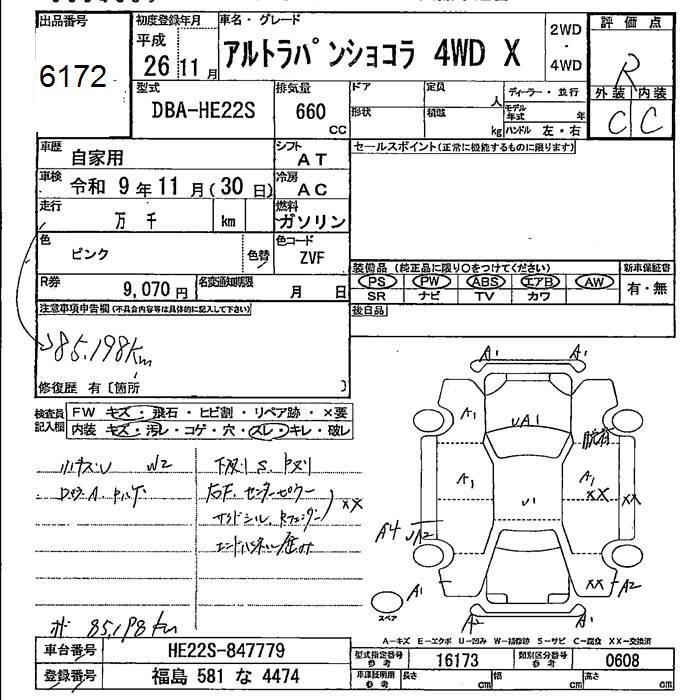 出品番号
6172
初度登録年月
平成
26 11 月
車名・グレード
アルトラパンショコラ 4WD X
2WD
・
4WD
評価点
R
外装 内装
C C
型式
DBA-HE22S
排気量
660
CC
ドア
定員
人
形状
積載
kg
ディーラー・並行
モデル年式
年
ハンドル 左・右
車歴
自家用
シフト
AT
車検
令和 9 年 11 月 (30 日)
冷房
AC
走行
万 千
km
燃料
ガソリン
色
ピンク
色替
色コード
ZVF
R券
9,070 円
名変通知期限
月 日
セールスポイント(正常に機能するものに限ります)
装備品 (純正品に限り○をつけてください)
新車保証書
PS PW ABS エアB AW
SR ナビ TV カワ
有・無
後日品
注意事項申告欄(不具合内容等は具体的に記入して下さい)
85,198km
修復歴 有〔箇所 〕
検査員記入欄
FW キズ・飛石・ヒビ割・リペア跡・×要
内装 キズ・汚レ・コゲ・穴・スレ・キレ・破レ
W2
下廻り S.
右F. センターピラー
サイドシル. Rフェンダー XX
エンドパネル
85,198km
A1 A1
A1
UA1
A1
U1
A1
XX
XX
A4
UA2
A1
XX
A2
A2
A1
スペア
A−キズ E−エクボ U−凹み W−補修跡 S−サビ C−腐食 XX−交換済
車台番号
HE22S-847779
登録番号
福島 581 な 4474
型式指定番号
参考
16173
類別区分番号
参考
0608
車庫証明用
参考
長さ
cm
幅
cm
高さ
cm